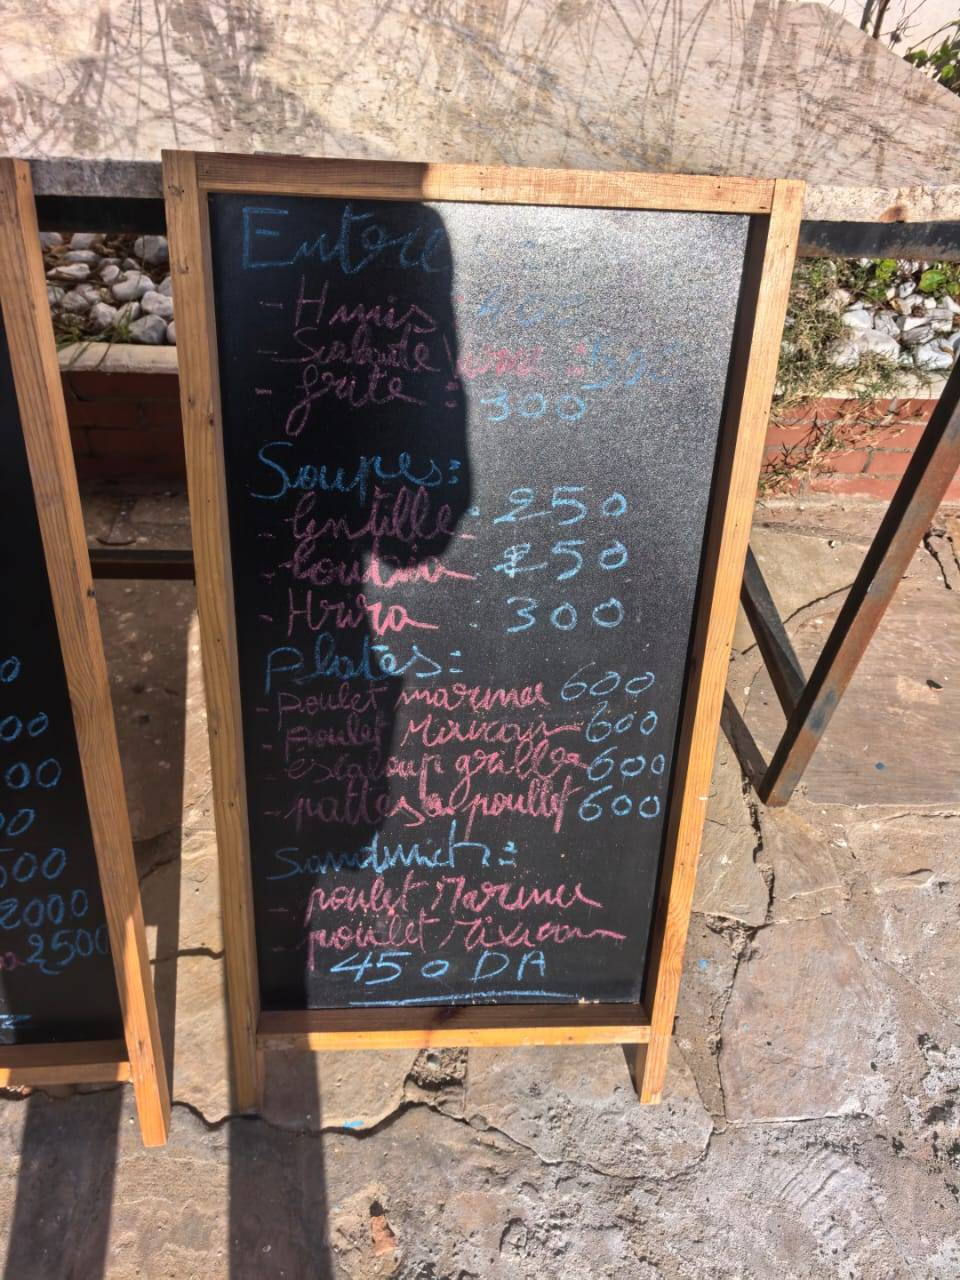 Entere
- Hmis : 400
- Salade Verre : 500
- frite : 300
Soupes :
- lentille : 250
- loubia : 250
- Hrira : 300
Plates :
- poulet mariner 600
- poulet Mixicain 600
- escaloup griller 600
- pattes a poullet 600
Sandwich :
- poulet Mariner
- poulet Mixicain
450 DA
00
00
500
2000
2500